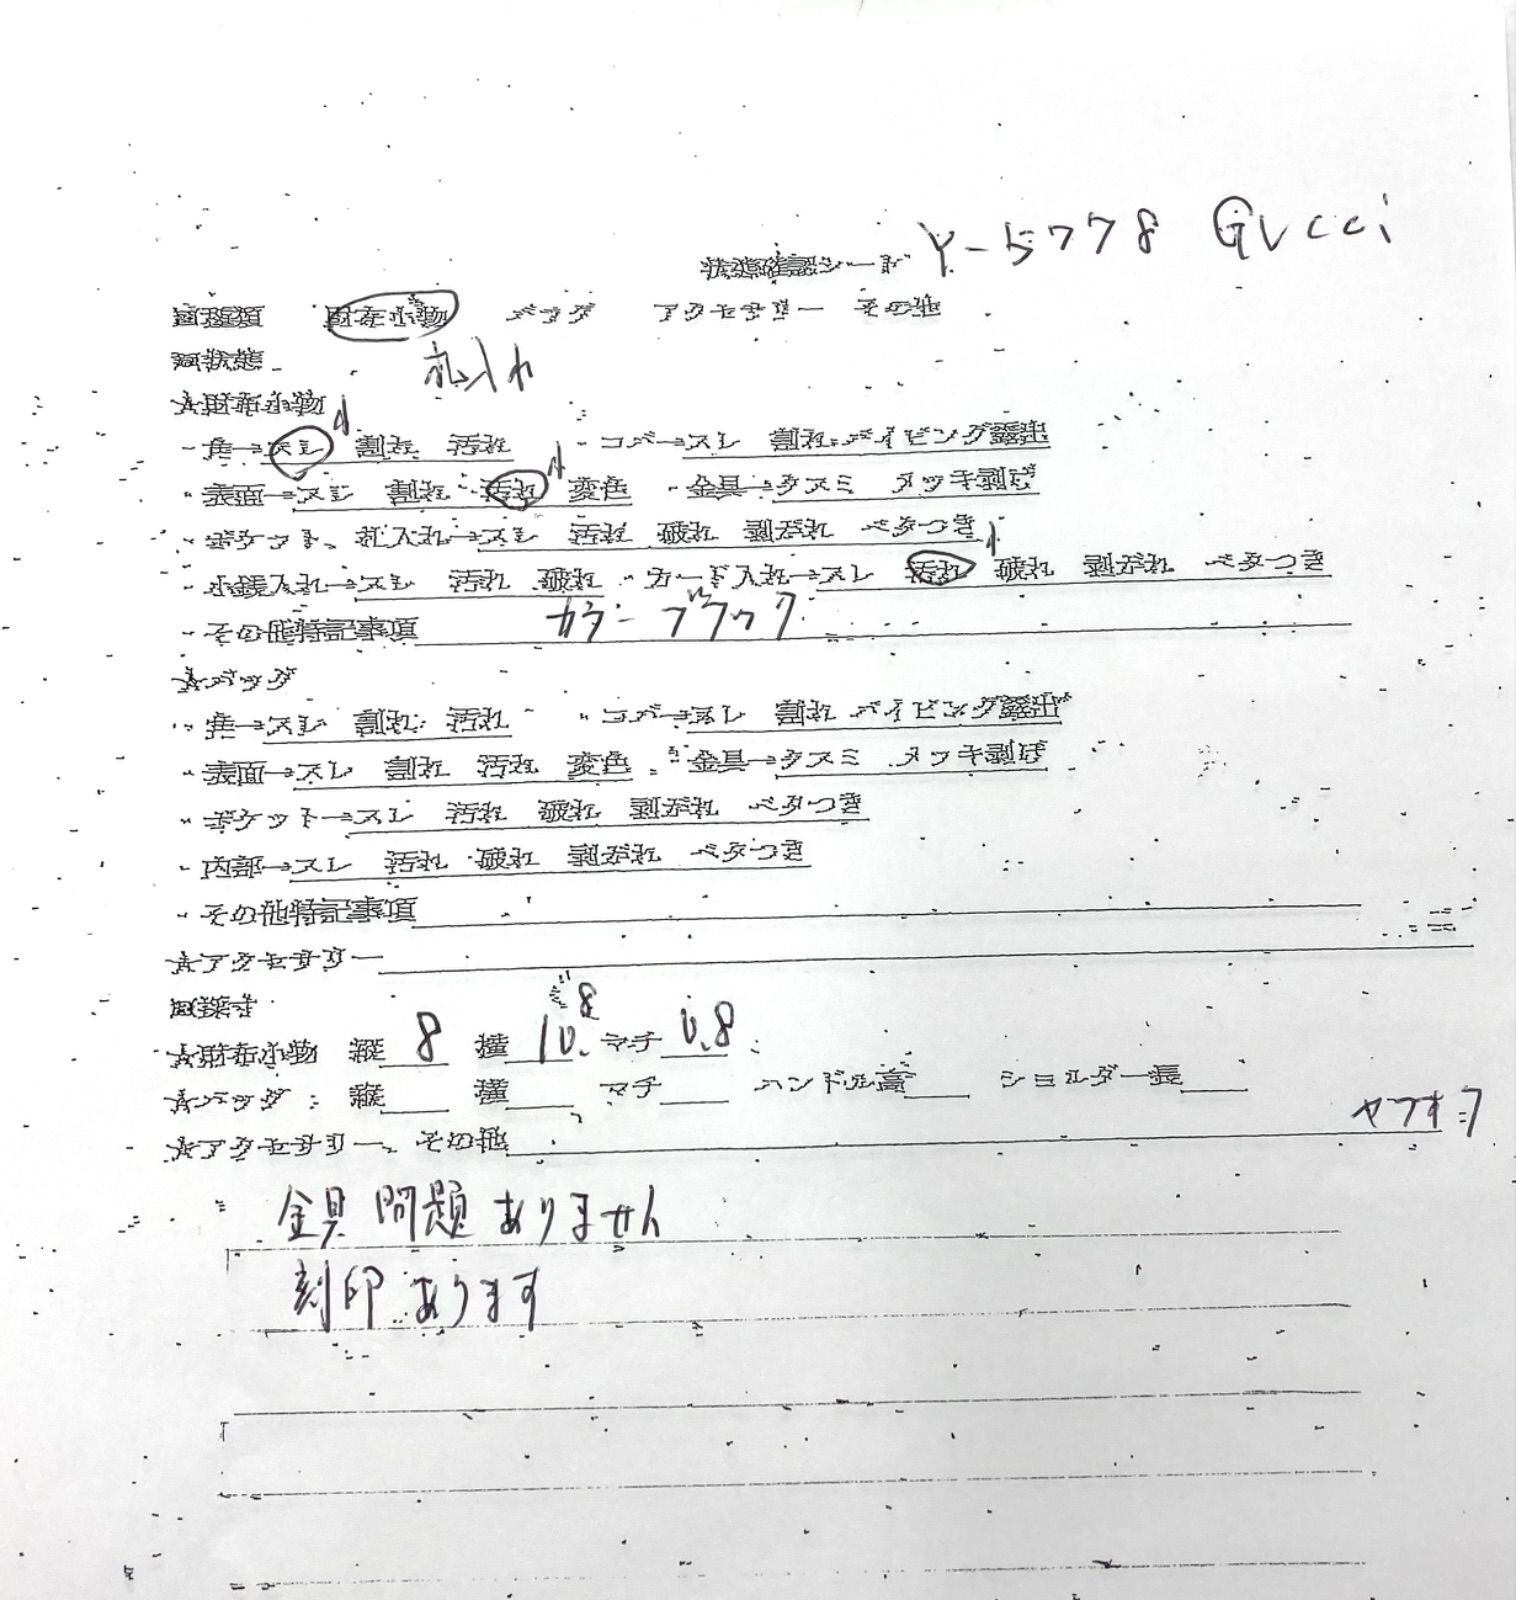 状態確認シート Y-5778 Gucci
財布小物 バッグ アクセサリー その他
状態
札入れ
☆財布小物
・角→スレ 割れ 汚れ ・コバ→スレ 割れ パイピング露出
・表面→スレ 割れ 汚れ 変色 ・金具→クスミ メッキ剥げ
・ポケット、札入れ→スレ 汚れ 破れ 剥がれ ベタつき
・小銭入れ→スレ 汚れ 破れ ・カード入れ→スレ 汚れ 破れ 剥がれ ベタつき
・その他特記事項 カラー ブラック
☆バッグ
・角→スレ 割れ 汚れ ・コバ→スレ 割れ パイピング露出
・表面→スレ 割れ 汚れ 変色 ・金具→クスミ メッキ剥げ
・ポケット→スレ 汚れ 破れ 剥がれ ベタつき
・内部→スレ 汚れ 破れ 剥がれ ベタつき
・その他特記事項
☆アクセサリー
採寸
☆財布小物 縦 8 横 10.8 マチ 0.8
☆バッグ 縦 横 マチ ハンドル高 ショルダー長
☆アクセサリー、その他 ヤフオフ
金具 問題ありません
刻印あります